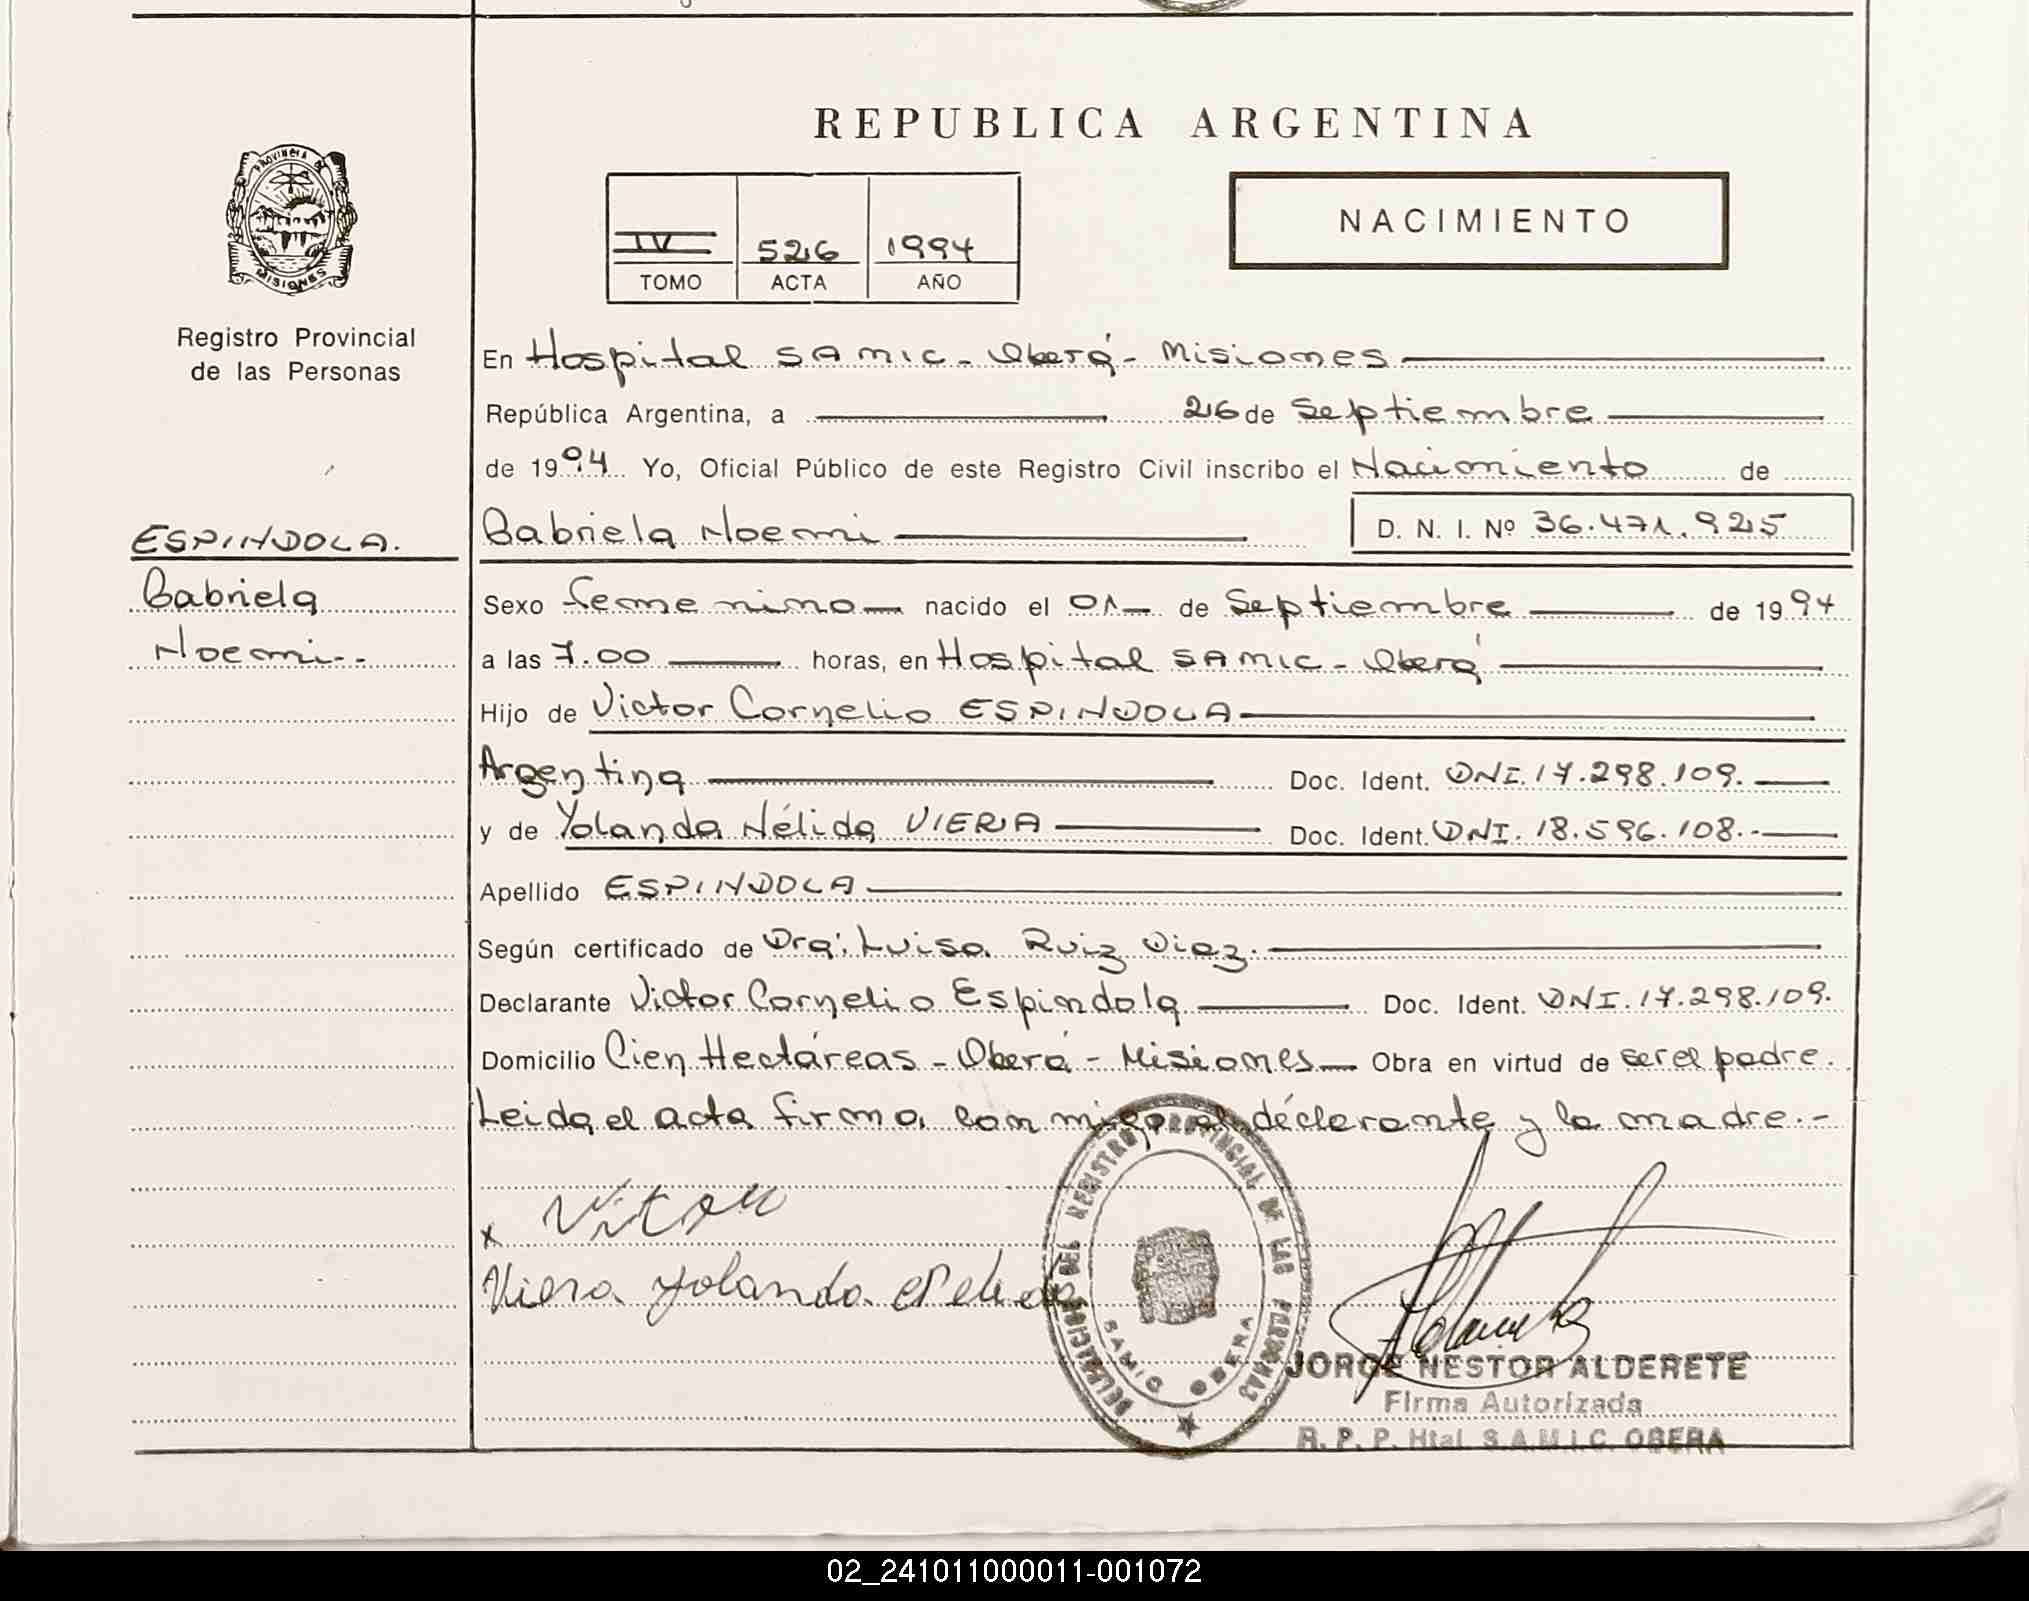 REPUBLICA ARGENTINA
PROVINCIA DE
MISIONES
Registro Provincial
de las Personas
NACIMIENTO
IV 526 1994
TOMO ACTA AÑO
En Hospital SAMIC - Oberá - Misiones
República Argentina, a 26 de Septiembre
de 1994 Yo, Oficial Público de este Registro Civil inscribo el Nacimiento de
ESPINDOLA.
Gabriela
Noemi..
Gabriela Noemi D. N. I. Nº 36.471.925
Sexo femenino nacido el 01 de Septiembre de 1994
a las 7.00 horas, en Hospital SAMIC - Oberá
Hijo de Victor Cornelio ESPINDOLA
Argentina Doc. Ident. DNI. 17.298.109.
y de Yolanda Nélida VIERA Doc. Ident. DNI. 18.596.108.-
Apellido ESPINDOLA
Según certificado de Dra: Luisa Ruiz Diaz.
Declarante Victor Cornelio Espindola Doc. Ident. DNI. 17.298.109.
Domicilio Cien Hectáreas - Oberá - Misiones Obra en virtud de ser el padre.
Leida el acta firma con migo el declarante y la madre.-
x Victor
Viera Yolanda Nelida
DELEGACION DEL REGISTRO PROVINCIAL DE LAS PERSONAS
SAMIC OBERA
JORGE NESTOR ALDERETE
Firma Autorizada
R. P. P. Htal. S.A.M.I.C. OBERA
02_241011000011-001072